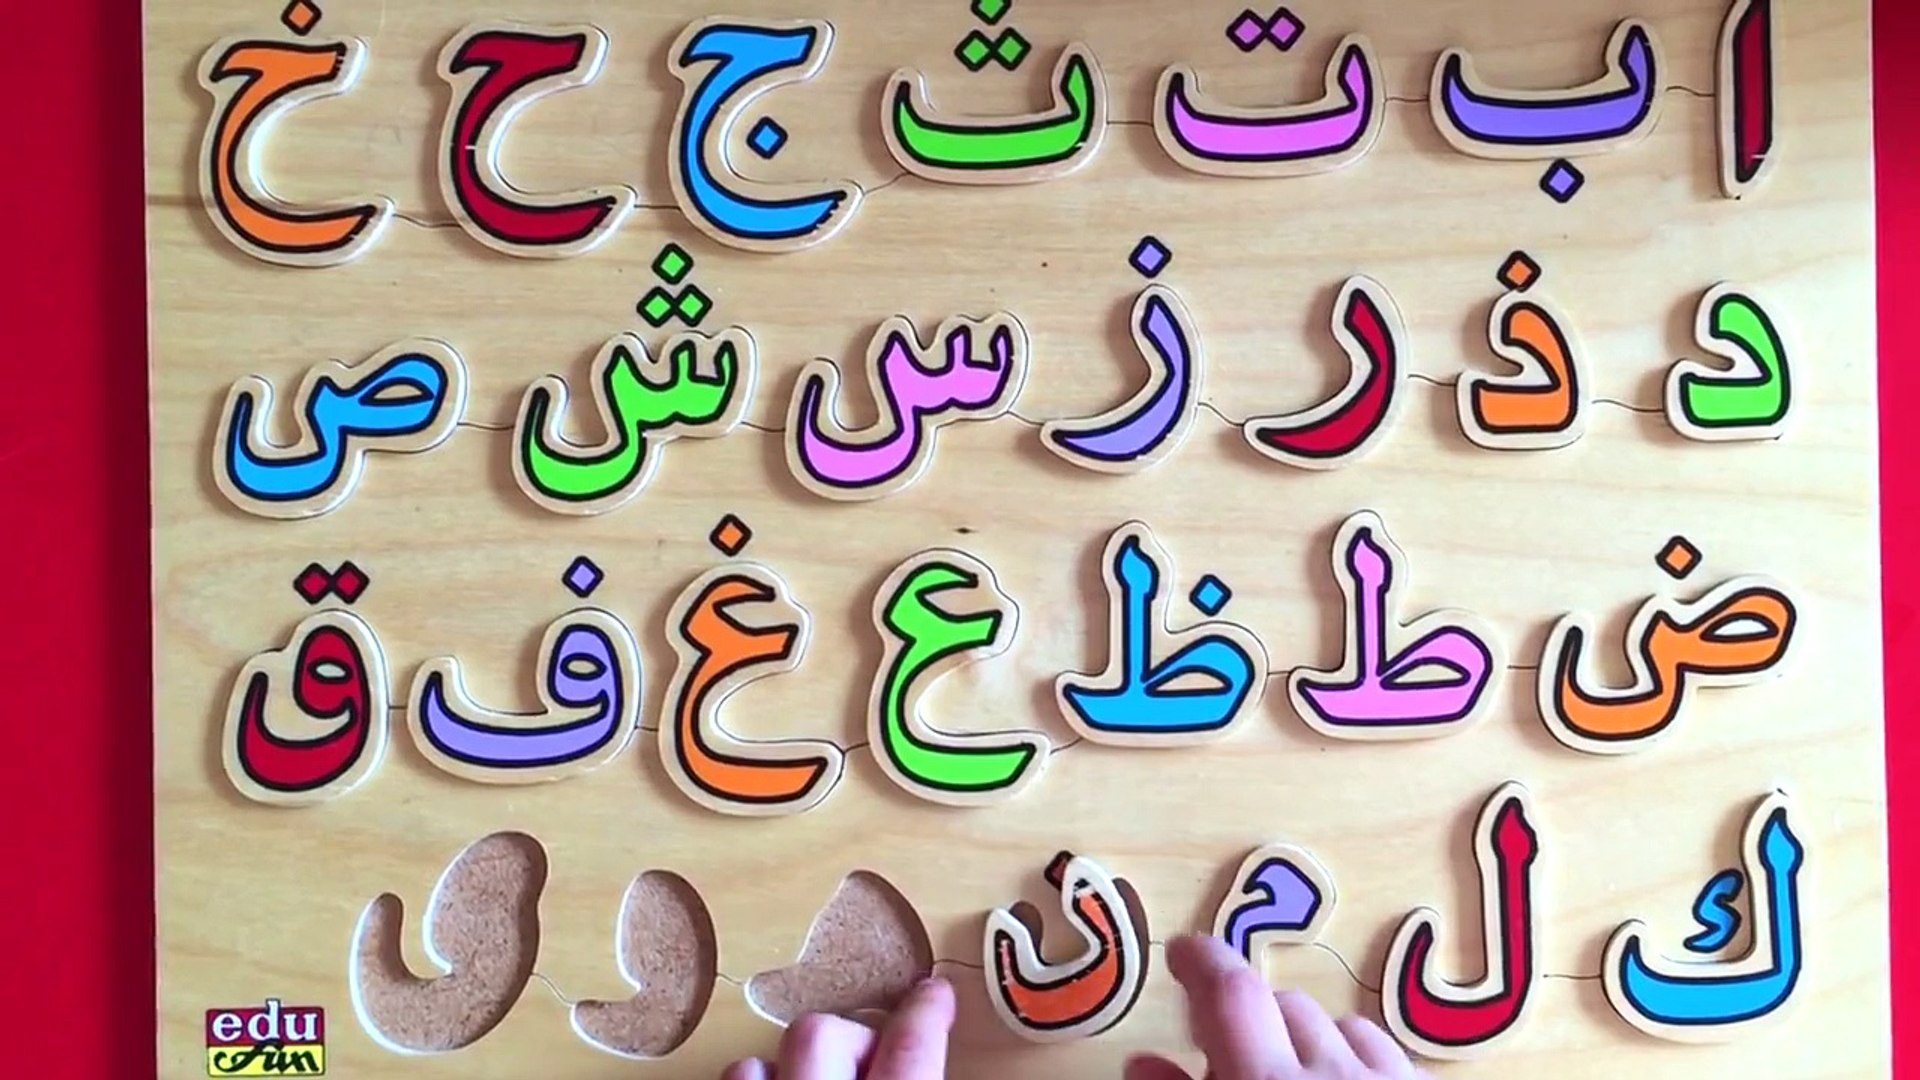 ا ب ت ث ج ح خ
د ذ ر ز س ش ص
ض ط ظ ع غ ف ق
ك ل م ن
edu
fun